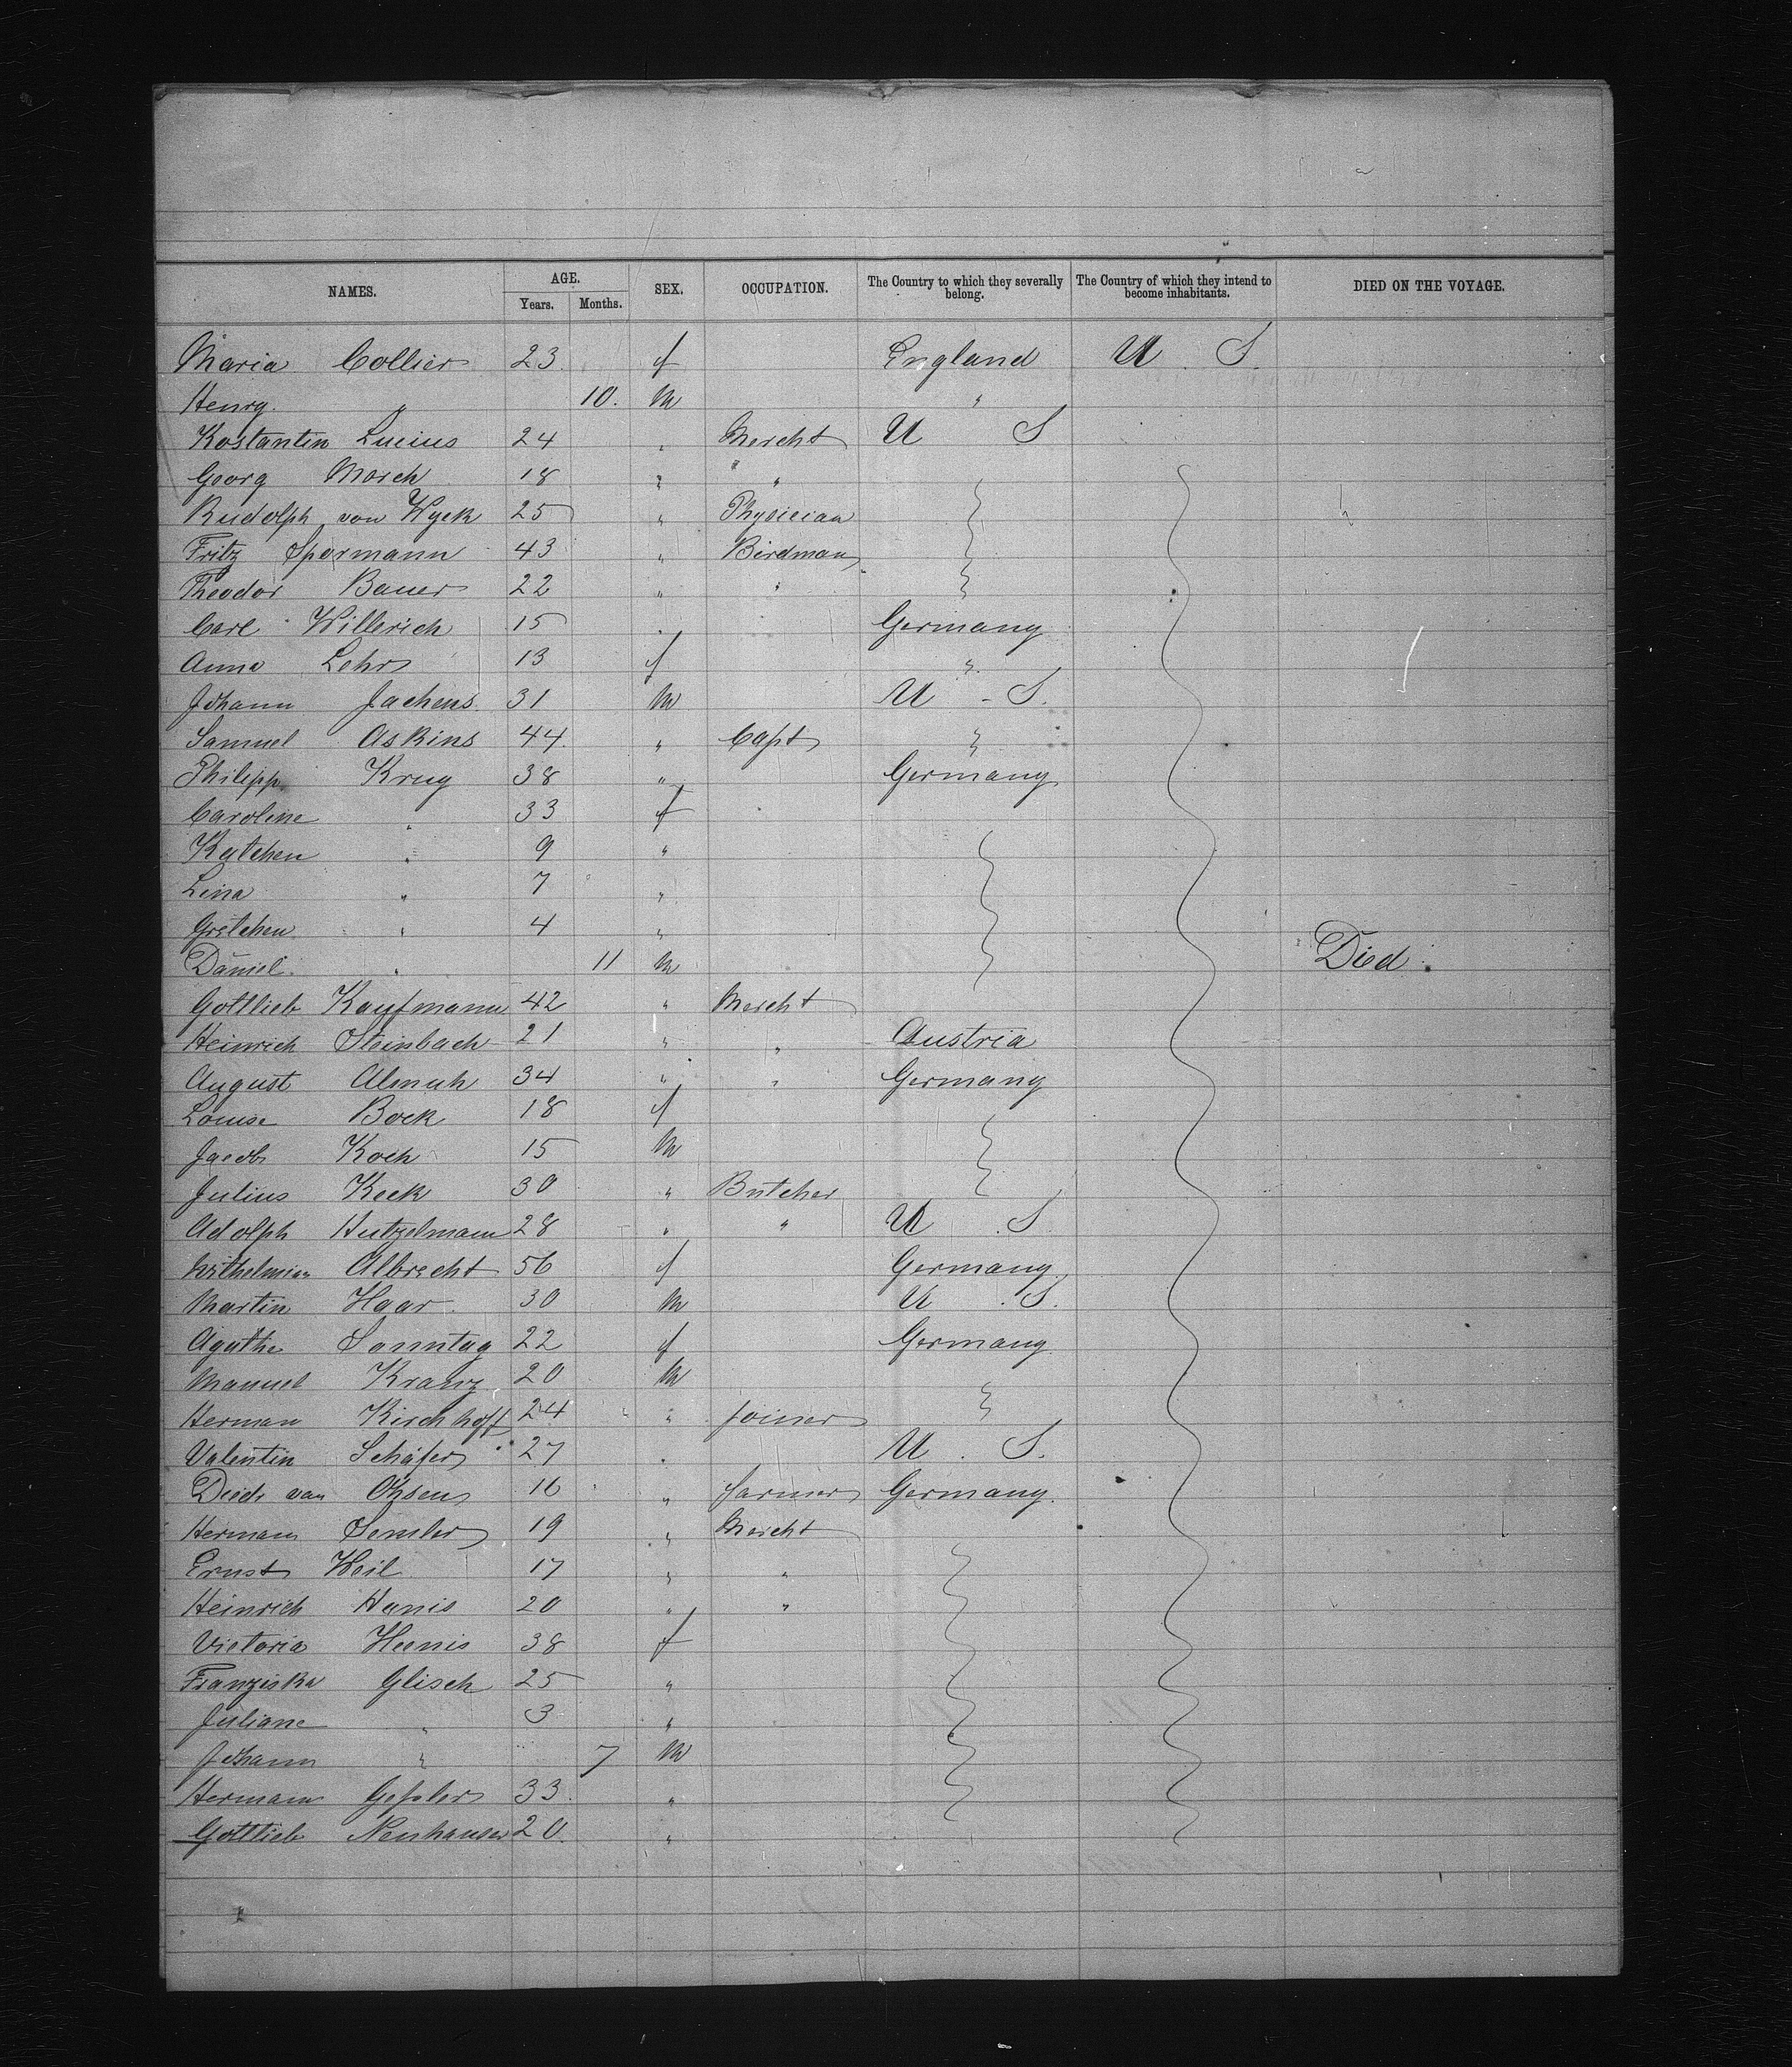 NAMES. AGE. SEX. OCCUPATION. The Country to which they severally belong. The Country of which they intend to become inhabitants. DIED ON THE VOYAGE.
Years. Months.
Maria Collier 23 f England U S.
Henry " 10. M "
Kostantin Lucius 24 " Mercht U S
Georg Morch 18 " "
Rudolph von Wyck 25 " Physician
Fritz Spermann 43 " Birdman
Theodor Bauer 22 " "
Carl Willerich 15 " Germany
Anna Lehrs 13 f "
Johann Jachens 31 M U - S.
Samuel Askins 44 " Capt "
Philipp Krug 38 " Germany
Caroline " 33 f
Katchen " 9 "
Lina " 7 "
Gretchen " 4 "
Daniel " 11 M Died
Gottlieb Kaufmann 42 " Mercht
Heinrich Steinbach 21 " " Austria
August Almuh 34 " " Germany
Louise Bock 18 f
Jacob Koch 15 M
Julius Keck 30 " Butcher
Adolph Hutzelmann 28 " " U S
Wilhelmine Albrecht 56 f Germany
Martin Haar 30 M U S.
Agathe Sonntag 22 f Germany
Manuel Kranz 20 M
Herman Kirchhoff 24 " Joiner
Valentin Schäfer 27 " U S.
Died. van Ohsen 16 " farmer Germany.
Hermann Semler 19 " Mercht
Ernst Weil 17 " "
Heinrich Hanis 20 " "
Victoria Heenis 38 f
Franziska Glisch 25 "
Juliane " 3 "
Johann " 7 M
Hermann Gessler 33. "
Gottlieb Neuhauser 20. "